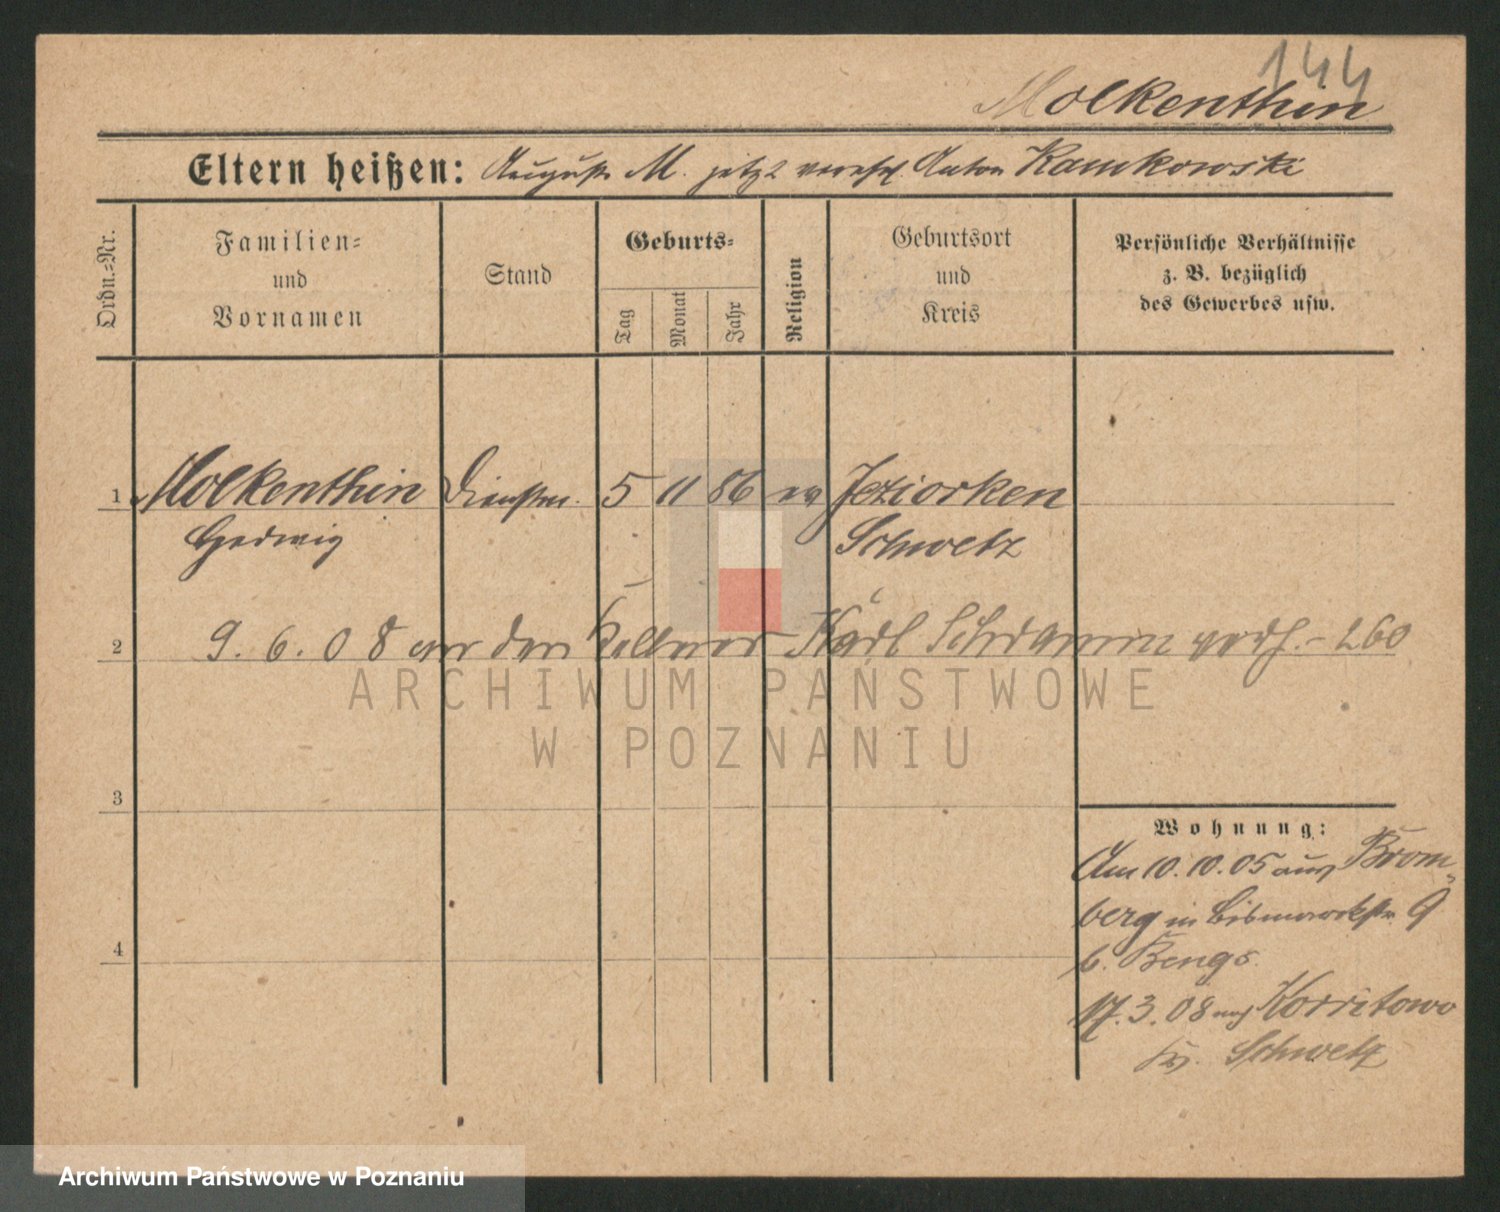 144
Molkenthin
Eltern heißen: August M. jetzt vereh. Anton Kamkowski
Ordn.=Nr.
Familien=
und
Vornamen
Stand
Geburts=
Tag
Monat
Jahr
Religion
Geburtsort
und
Kreis
Persönliche Verhältnisse
z. B. bezüglich
des Gewerbes usw.
1 Molkenthin 5 11 86 ev Jeziorken
Hedwig Schwetz
2 9. 6. 08 an den Kellner Karl Schramm verh. - 260
ARCHIWUM PAŃSTWOWE
W POZNANIU
3
Wohnung:
Am 10. 10. 05 aus Brom„
berg in Bismarckstr. 9
b. Bengs.
4
17. 3. 08 nach Korritowo
Kr. Schwetz
Archiwum Państwowe w Poznaniu